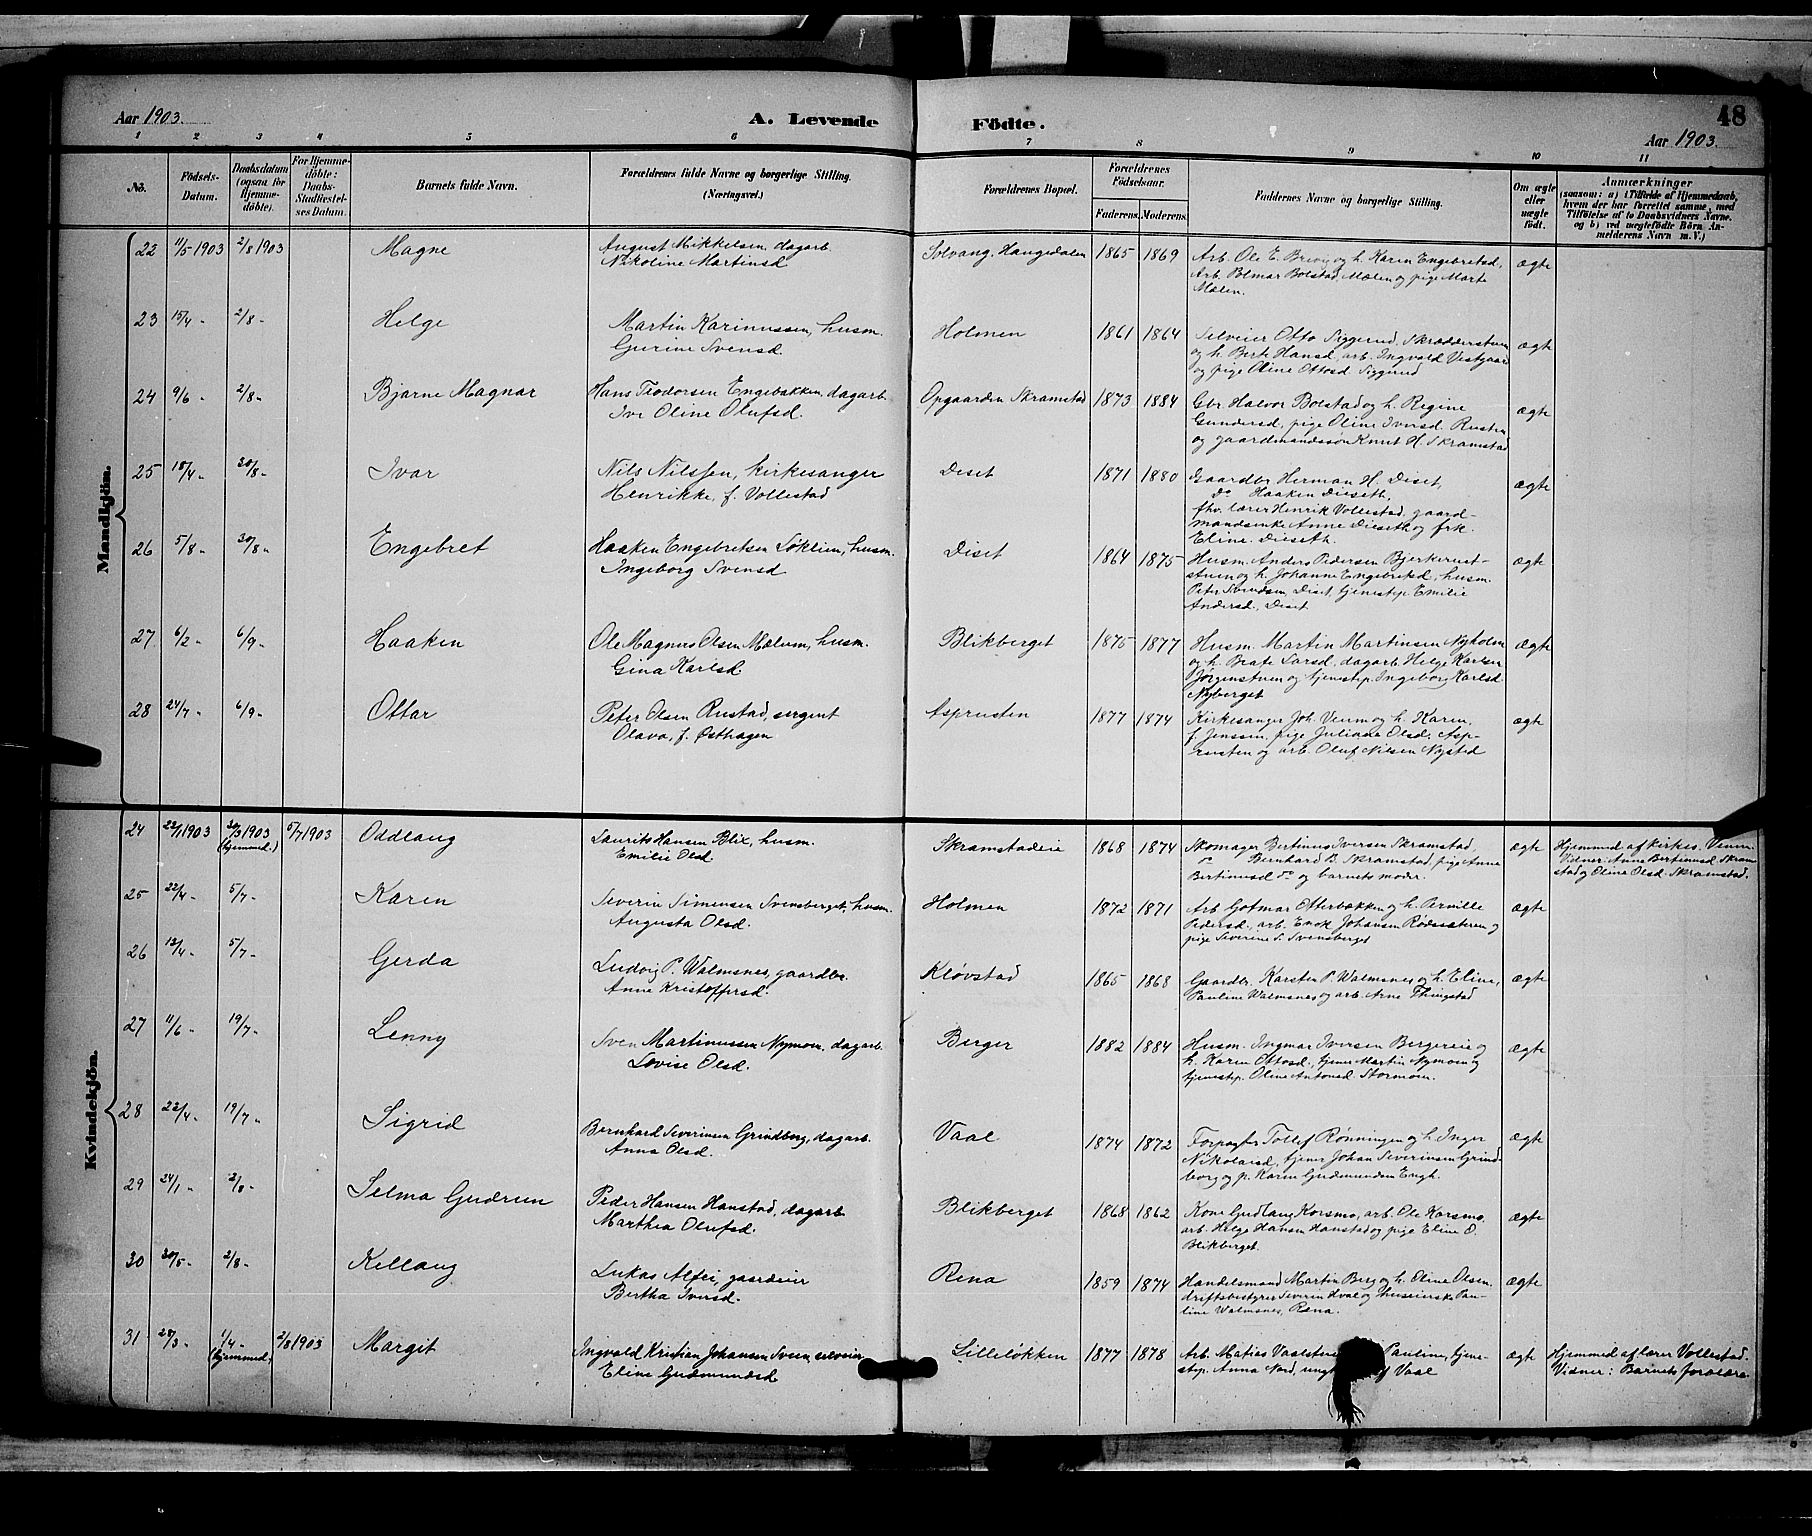 Aar 1903.
A. Levende
Födte.
48
Aar 1903.
1 2 3 4 5 6 7 8 9 10 11
No.
Födsels-Datum.
Daabsdatum (ogsaa for Hjemme-döbte).
For Hjemme-döbte: Daabs-Stadfæstel-ses Datum.
Barnets fulde Navn.
Forældrenes fulde Navne og borgerlige Stilling. (Næringsvei.)
Forældrenes Bopæl.
Forældrenes Födselsaar.
Faderens. Moderens.
Faddernes Navne og borgerlige Stilling.
Om ægte eller uægte födt.
Anmærkninger
(saasom: a) i Tilfælde af Hjemmedaab, hvem der har forrettet samme, med Tilföielse af to Daabsvidners Navne. og b) ved uægtefödte Börn Anmelderens Navn m.V.)
Mandkjön.
22 11/5 1903 2/8 1903 Magne August Mikkelsen, dagarb. Solvang, Haugedalen 1865 1869 Arb. Ole E. Brevig og h. Karen Engebretsd, ægte
Nikoline Martinsd Arb. Bolstad, Mælen og pige Marte
Mælen.
23 15/4 - 2/8 - Helge Martin Karinussen, husm. Holmen 1861 1864 Selveier Otto Siggerud, Skrædderstuen ægte
Gurine Svensd. og h. Berte Hansd, arb. Ingvald Vestgaar
og pige Oline Ottosd Siggerud
24 9/6 - 2/8 - Bjarne Magnar Hans Teodorsen Engebakken, dagarb. Opgaarden Skramstad 1873 1884 Gbr Halvor Bolstad og h. Regine ægte
Oline Olufsd. Gundersd, pige Oline Iversd. Rusten
og gaardmandssøn Knut H. Skramstad
25 18/4 - 30/8 - Ivar Nils Nilssen, kirkesanger Diset 1871 1880 Gaardbr Herman H. Diset, ægte
Henrikke, f. Vollestad Do Haaken Dieseth,
fhv. lærer Henrik Vollestad, gaard-
mandsenke Anne Dieseth og frk.
Eline Dieseth.
26 5/8 - 30/8 - Engebret Haaken Engebretsen Løklien, husm. Diset 1864 1875 Husm. Anders Pedersen Bjerkeruet- ægte
Ingeborg Svensd stuen og h. Johanne Engebretsd, husm.
Peter Svendsen, Diset, tjenestep. Emilie
Andersd, Diset
27 6/2 - 6/9 - Haaken Ole Magnus Olsen Mælum, husm. Blikberget 1875 1877 Husm. Martin Martinsen Nyholm ægte
Gina Karlsd. og h. Beate Larsd, dagarb. Helge Karlsen
Jørgenstuen og tjenestep. Ingeborg Karlsd.
Nyberget
28 24/7 - 6/9 - Ottar Peter Olsen Rustad, sergent Asprusten 1877 1874 Kirkesanger Joh. Venn og h. Karen, ægte
Olava, f. Østhagen f. Jenssen, pige Juliane Olsd. Asp-
rusten og arb. Oluf Nilsen Nysted
Kvindekjön.
24 22/1 1903 30/3 1903 (hjemmed.) 5/7 1903 Oddlaug Laurits Hansen Blix, husm. Skramstadeie 1868 1874 Skomager Bertinus Iversen Skramstad, ægte Hjemmed af kirkes. Venn.
Emilie Olsd. Do Bernhard B. Skramstad, pige Anne Vidner: Anne Bertinusd Skram
Bertinusd Do og barnets moder. stad og Oline Olsd. Skramstad.
25 22/4 - 5/7 - Karen Severin Simensen Svensberget, husm. Holmen 1872 1871 Arb. Gotmar Otterbækken og h. Pernille ægte
Augusta Olsd. Pedersd., arb. Enok Johansen Rødsæteren og
pige Severine S. Svensberget
26 13/4 - 5/7 - Gerda Ludvig P. Walmsnes, gaardbr. Kløvstad 1865 1868 Gaardbr. Karsten P. Walmsnes og h. Eline, ægte
Anne Kristoffersd. Pauline Walmsnes og arb. Arne Thingstad
27 11/6 - 19/7 - Lenny Sven Martinussen Nymoen, dagarb. Berger 1882 1884 Husm. Ingmar Iversen Bergereie og ægte
Lovise Olsd. h. Karen Ottosd., tjener Martin Nymoen og
tjenestep. Oline Antonsd. Stormoen.
28 22/4 - 19/7 - Sigrid Bernhard Severinsen Grindberg, dagarb. Vaal 1874 1872 Forpagter Tollef Rønningen og h. Inger ægte
Anna Olsd. Nikolaisd, tjener Johan Severinsen Grind-
berg og p. Karen Gudmundsen Engh.
29 24/1 - 2/8 - Selma Gudrun Peder Hansen Hanstad, dagarb. Blikberget 1868 1862 Kone Gudlaug Korsmo, arb. Ole Korsmo, ægte
Marthea Olufsd. arb. Helge Hansen Hanstad og pige Eline O.
Blikberget.
30 30/5 - 2/8 - Kellaug Lukas Alfei, gaardeier Rena 1859 1874 Handelsmand Martin Berg og h. Oline Olsen, ægte
Bertha Iversd. driftsbestyrer Severin Hval og huseierske Pau-
line Walmsnes, Rena.
31 28/3 - 1/4 - (hjemmed.) 2/8 1903 Margit Ingvald Kristian Johansen Sveen, selveier Lilleløkken 1877 1878 Arb. Matias Vaalstu Pauline, tjene- ægte Hjemmed af lærer Vollestad.
Eline Gudmundsd step. Anna Nord, ungk Vaal Vidner: Barnets forældre